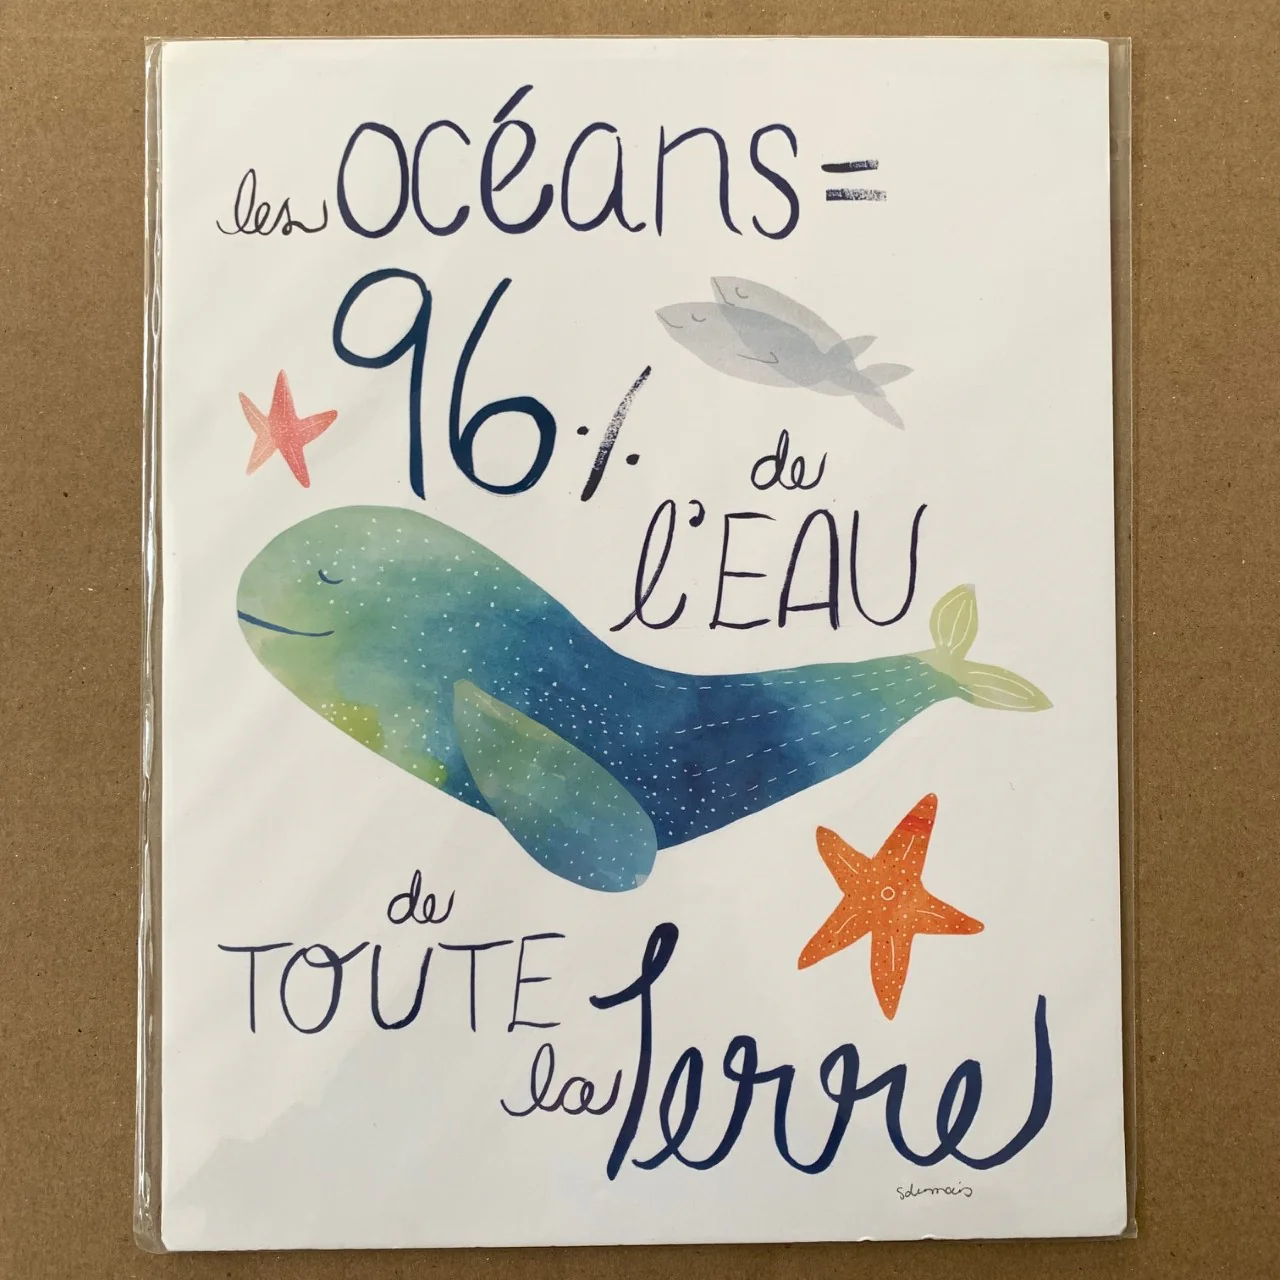 les océans =
96%
de
l'EAU
de
TOUTE
la Terre